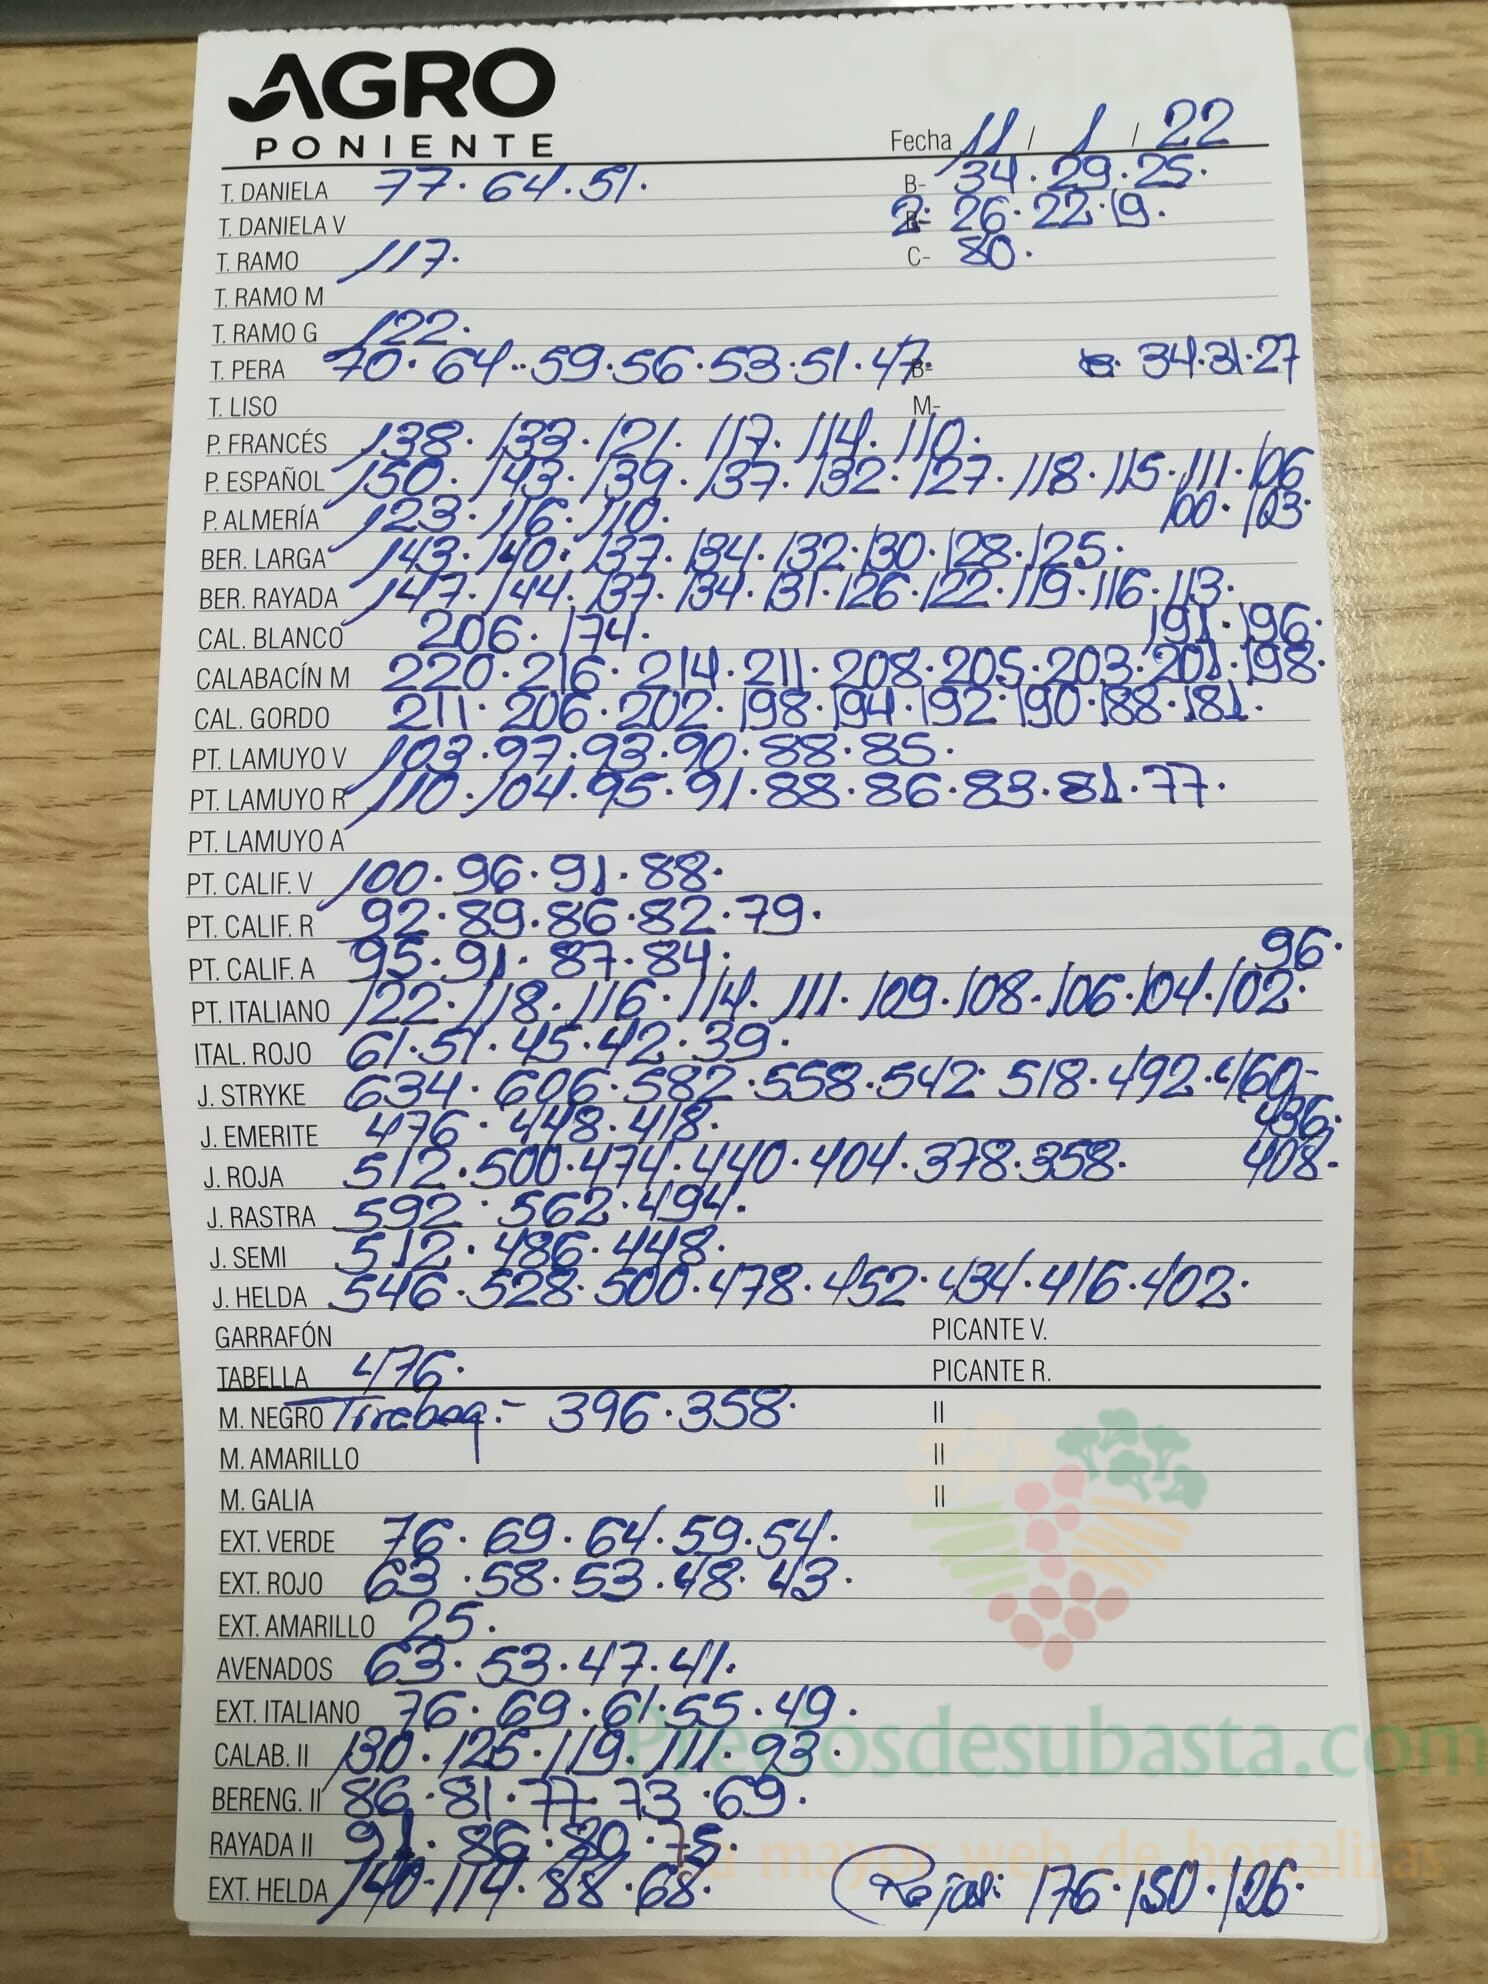 AGRO
PONIENTE
Fecha 11 / 1 / 22
T. DANIELA 77. 64. 51. B- 34. 29. 25.
T. DANIELA V 2- 26. 22. 19.
T. RAMO 117. C- 80.
T. RAMO M
T. RAMO G 122.
T. PERA 70. 64. 59. 56. 53. 51. 47. B- 34. 31. 27
T. LISO M-
P. FRANCÉS 138. 133. 121. 117. 114. 110.
P. ESPAÑOL 150. 143. 139. 137. 132. 127. 118. 115. 111. 106
100. 103.
P. ALMERÍA 123. 116. 110.
BER. LARGA 143. 140. 137. 134. 132. 130. 128. 125.
BER. RAYADA 147. 144. 137. 134. 131. 126. 122. 119. 116. 113.
CAL. BLANCO 206. 174.
191. 196.
CALABACÍN M 220. 216. 214. 211. 208. 205. 203. 201. 198.
CAL. GORDO 211. 206. 202. 198. 194. 192. 190. 188. 181.
PT. LAMUYO V 103. 97. 93. 90. 88. 85.
PT. LAMUYO R 110. 104. 95. 91. 88. 86. 83. 81. 77.
PT. LAMUYO A
PT. CALIF. V 100. 96. 91. 88.
PT. CALIF. R 92. 89. 86. 82. 79.
PT. CALIF. A 95. 91. 87. 84.
96.
PT. ITALIANO 122. 118. 116. 114. 111. 109. 108. 106. 104. 102.
ITAL. ROJO 61. 51. 45. 42. 39.
J. STRYKE 634. 606. 582. 558. 542. 518. 492. 460-
436.
408.
J. EMERITE 476. 448. 418.
J. ROJA 512. 500. 474. 440. 404. 378. 358.
J. RASTRA 592. 562. 494.
J. SEMI 512. 486. 448.
J. HELDA 546. 528. 500. 478. 452. 434. 416. 402.
GARRAFÓN PICANTE V.
TABELLA 476. PICANTE R.
M. NEGRO Tirabeq.- 396. 358. II
M. AMARILLO II
M. GALIA II
EXT. VERDE 76. 69. 64. 59. 54.
EXT. ROJO 63. 58. 53. 48. 43.
EXT. AMARILLO 25.
AVENADOS 63. 53. 47. 41.
EXT. ITALIANO 76. 69. 61. 55. 49.
Preciosdesubasta.com
CALAB. II 130. 125. 119. 111. 93.
BERENG. II 86. 81. 77. 73. 69.
RAYADA II 91. 86. 80. 75.
La mayor web de hortalizas
EXT. HELDA 140. 114. 88. 68. Rojas: 176. 150. 126.